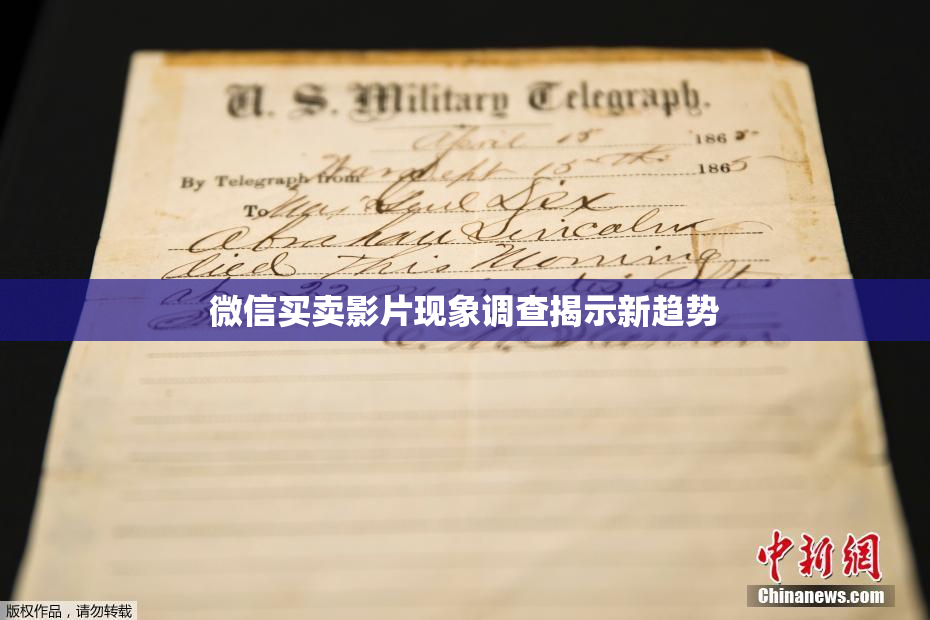 U. S. Military Telegraph.
April 15 1865
By Telegraph from War Dept 15th 1865
To Maj Genl Dix
Abraham Lincoln
died this Morning
at 22 minutes after
微信买卖影片现象调查揭示新趋势
E. M. Stanton
中新網
Chinanews.com
版权作品，请勿转载